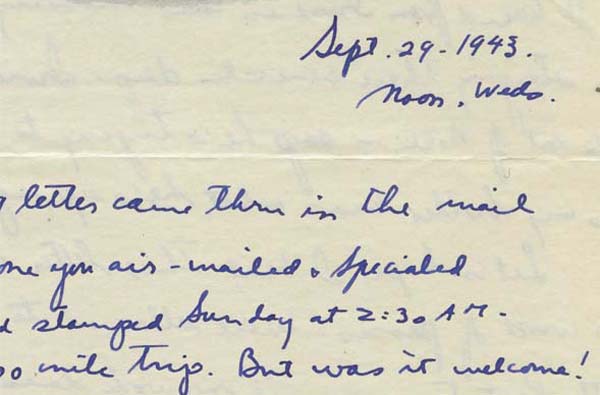 Sept. 29 - 1943.
Noon, Weds.
letter came thru in the mail
one you air-mailed & specialed
d stamped Sunday at 2:30 AM.
00 mile trip. But was it welcome!